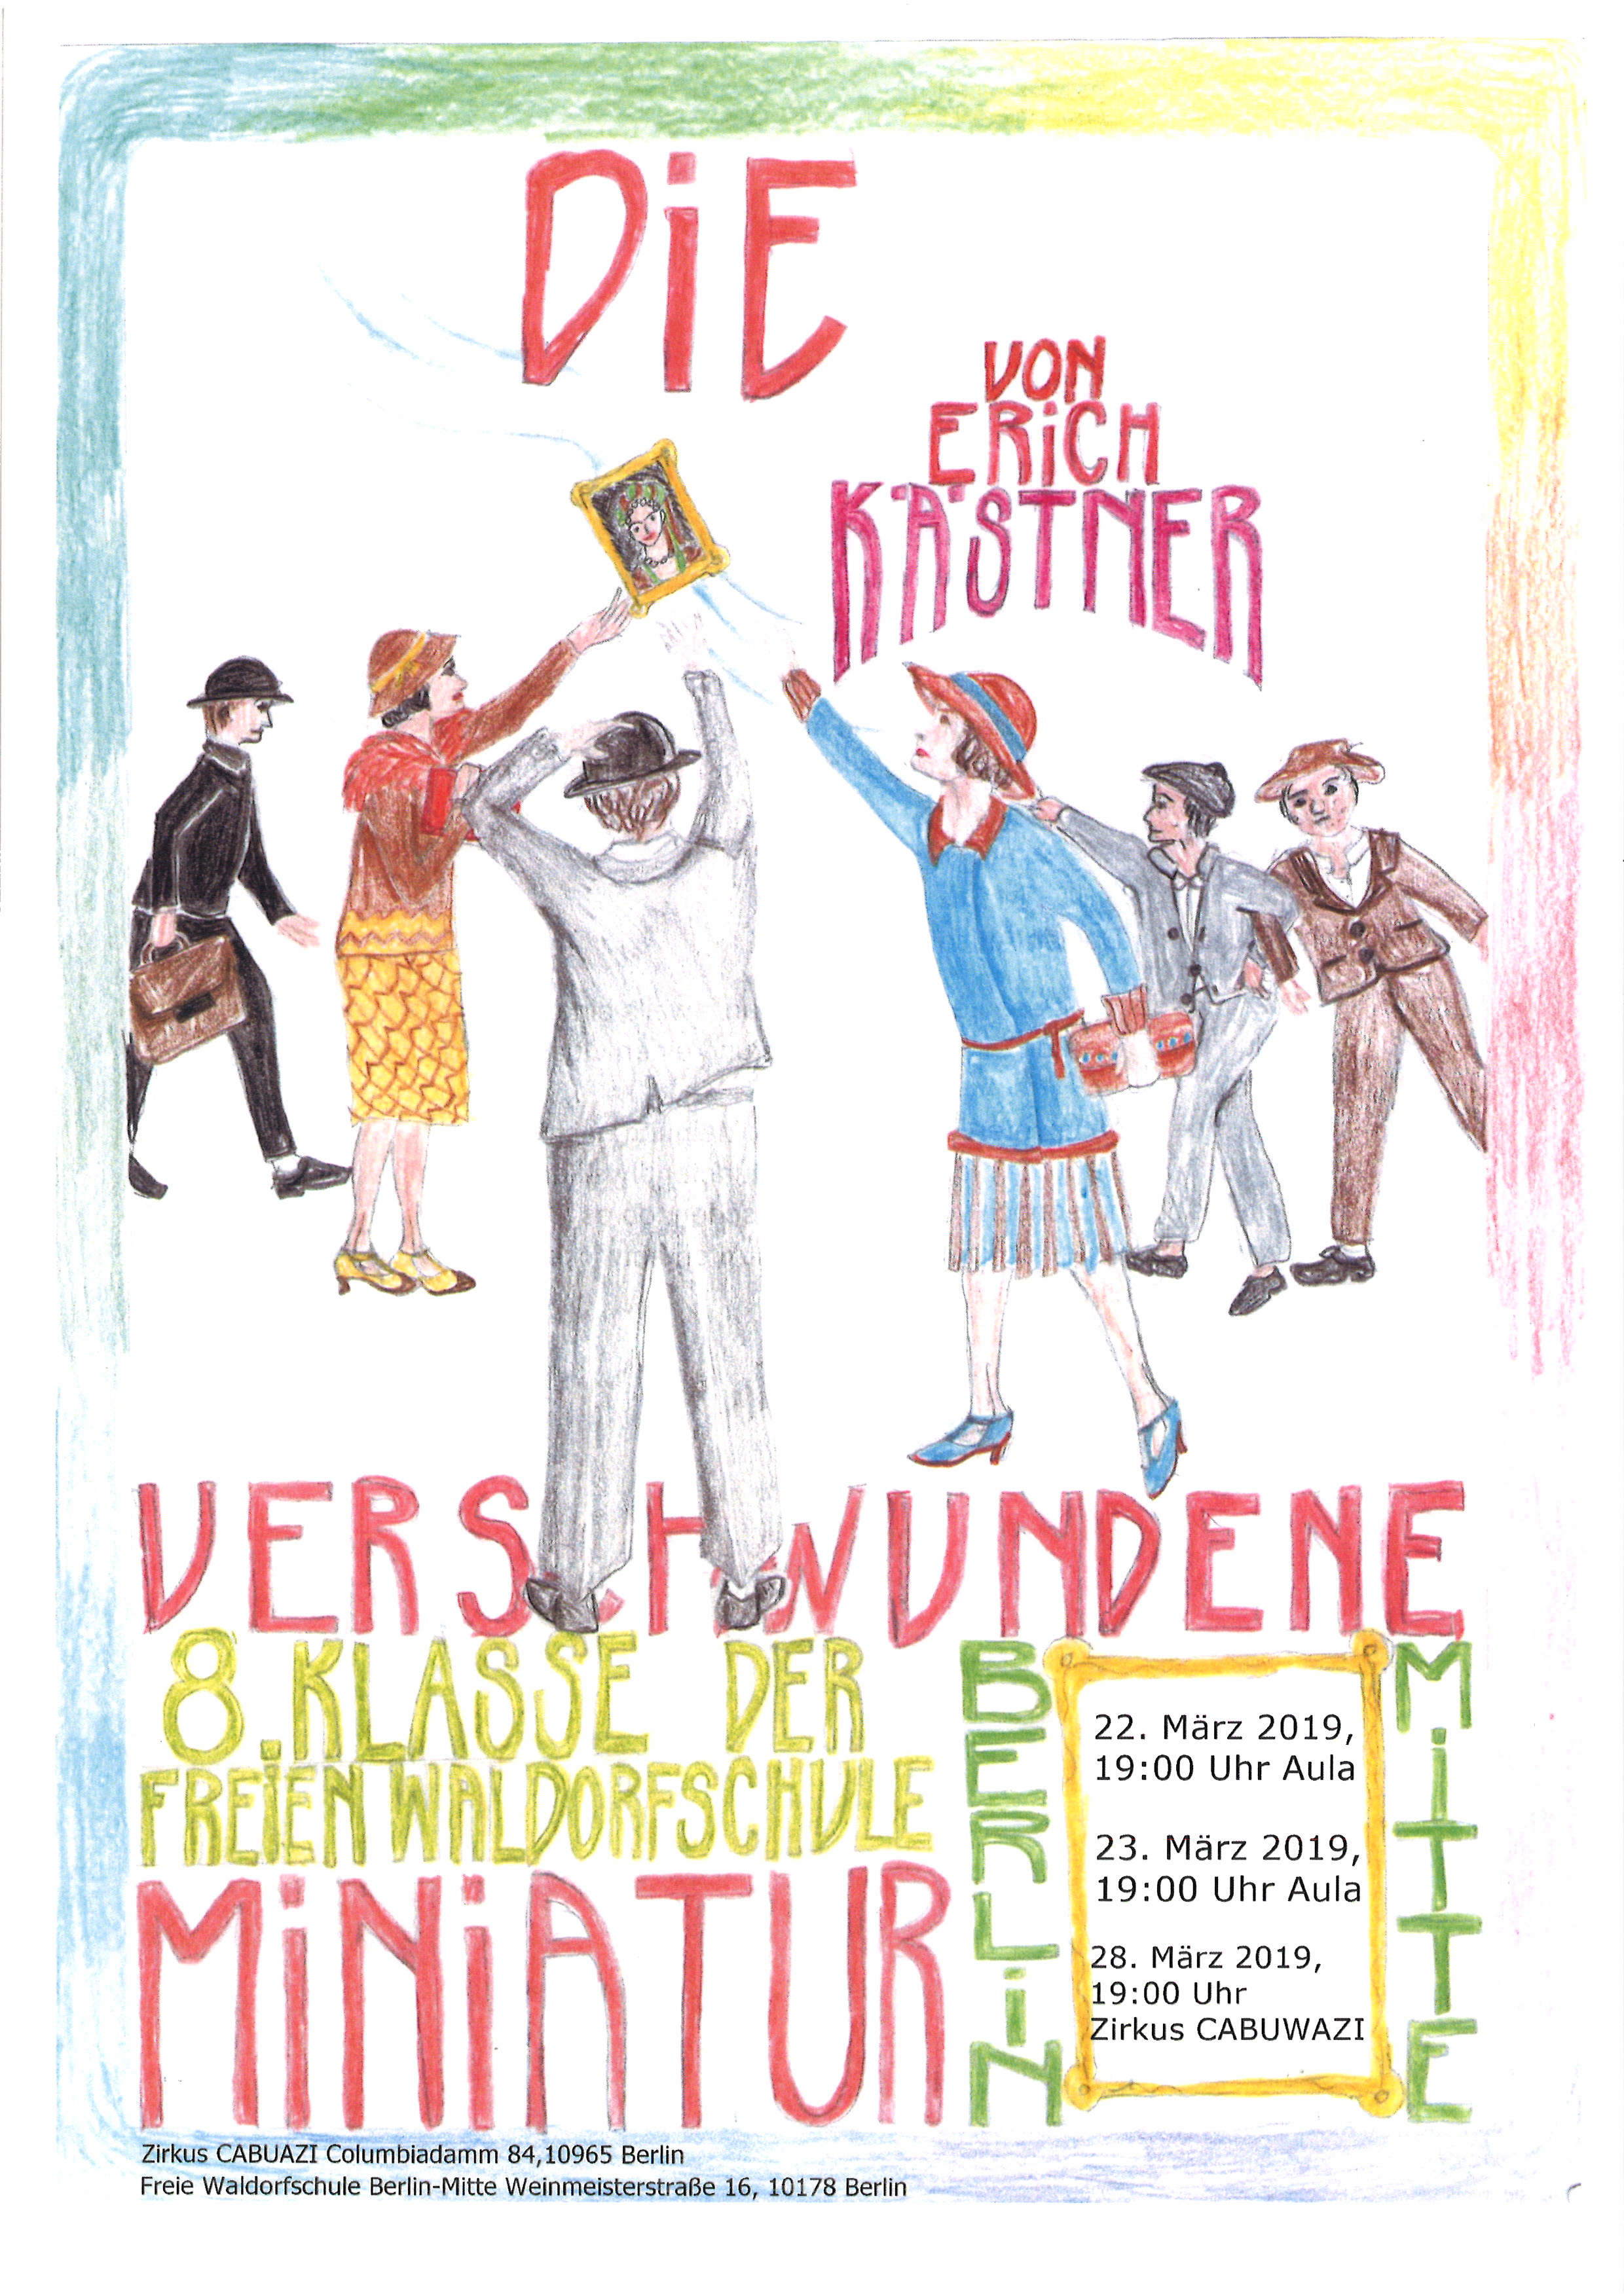 DiE
VON
ERiCH
KÄSTNER
VERSCHWUNDENE
8. KLASSE DER
FREiEN WALDORFSCHULE
BERLiN
MiTTE
MiNiATUR
22. März 2019,
19:00 Uhr Aula
23. März 2019,
19:00 Uhr Aula
28. März 2019,
19:00 Uhr
Zirkus CABUWAZI
Zirkus CABUAZI Columbiadamm 84,10965 Berlin
Freie Waldorfschule Berlin-Mitte Weinmeisterstraße 16, 10178 Berlin